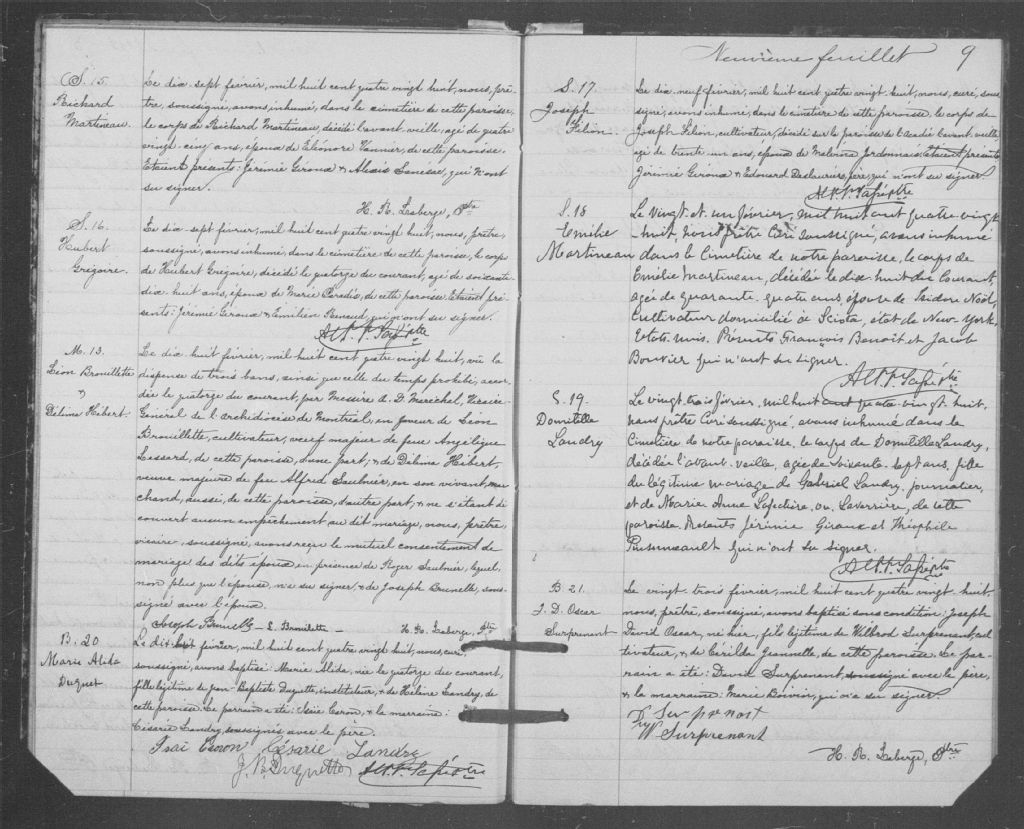 S. 15.
Richard
Martineau.
Le dix sept février, mil huit cent quatre vingt huit, nous, prê-
tre, soussigné, avons inhumé, dans le cimetière de cette paroisse,
le corps de Richard Martineau, décédé l'avant-veille, agé de quatre
vingt-cinq ans, époux de Eléonore Vannier, de cette paroisse.
Etaient présents: Jérémie Giroux & Alexis Lanesse, qui n'ont
su signer.
H. R. Laberge, Ptre
S. 16.
Hubert
Grégoire.
Le dix sept février, mil huit cent quatre vingt huit, nous, prêtre,
soussigné, avons inhumé, dans le cimetière de cette paroisse, le corps
de Hubert Grégoire, décédé le quatorze du courant, agé de soixante
dix huit ans, époux de Marie Paradis, de cette paroisse. Etaient pré-
sents: Jérémie Giroux & Emilien Renaud, qui n'ont su signer.
M. 13.
Léon Brouillette
&
Délima Hébert.
Le dix huit février, mil huit cent quatre vingt huit, vu la
dispense de trois bans, ainsi que celle du temps prohibé, accor-
dée le quatorze du courant, par Messire L. D. Maréchal, Vicaire-
Général de l'archidiocèse de Montréal, en faveur de Léon
Brouillette, cultivateur, veuf majeur de feue Angélique
Lessard, de cette paroisse, d'une part; & de Délima Hébert,
veuve majeure de feu Alfred Saulnier, en son vivant, mar-
chand, aussi, de cette paroisse, d'autre part, & ne s'étant dé-
couvert aucun empêchement au dit mariage, nous, prêtre,
vicaire, soussigné, avons reçu le mutuel consentement de
mariage des dits époux en présence de Roger Saulnier, lequel,
non plus que l'épouse, n'a su signer, & de Joseph Brunelle, sous-
signé avec l'époux.
Joseph Brunelle - L. Brouilette - H. R. Laberge, Ptre
B. 20
Marie Alida
Duquet
Le dix huit février, mil huit cent quatre vingt huit, nous, curé,
soussigné, avons baptisé: Marie Alida, née le quatorze du courant,
fille légitime de Jean-Baptiste Duquette, instituteur, & de Hélène Landry, de
cette paroisse. Le parrain a été: Isaïe Caron, & la marraine:
Césarie Landry, soussignés avec le père.
Isaï Caron Césarie Landry
J. B. Duquette
Neuvième feuillet 9
S. 17.
Joseph
Filion.
Le dix neuf février, mil huit cent quatre vingt huit, nous, curé, sous-
signé, avons inhumé, dans le cimetière de cette paroisse, le corps de
Joseph Filion, cultivateur, décédé sur la paroisse de l'Acadie l'avant-veille
agé de trente-un ans, époux de Malvina Jordonnais. Etaient présents:
Jérémie Giroux & Edouard Deslauriers, père, qui n'ont su signer.
S. 18
Emilie
Martineau
Le vingt-et-un février, mil huit cent quatre vingt
-huit, nous prêtre Curé soussigné, avons inhumé
dans le Cimetière de notre paroisse, le corps de
Emilie Martineau, décédée le dix-huit du Courant,
agée de quarante-quatre ans, épouse de Isidore Noël,
Cultivateur domicilié à Sciota, état de New-York,
Etats-Unis. Présents François Benoit et Jacob
Bouvier qui n'ont su signer.
S. 19.
Domitille
Landry
Le vingt-trois février, mil huit cent quatre vingt-huit,
nous prêtre Curé soussigné, avons inhumé dans le
Cimetière de notre paroisse, le corps de Domitille Landry,
décédée l'avant-veille, agée de soixante-sept ans, fille
du légitime mariage de Gabriel Landry, journalier,
et de Marie Anne ou Laverrière, de cette
paroisse. Présents Jérémie Giroux et Théophile
qui n'ont su signer.
B. 21.
J. D. Oscar
Surprenant
Le vingt-trois février, mil huit cent quatre vingt-huit,
nous, prêtre, soussigné, avons baptisé sous condition: Joseph
David Oscar, né hier, fils légitime de Wilbrod Surprenant, cul-
tivateur, & de Exilda, de cette paroisse. Le par-
rain a été: David Surprenant, soussigné avec le père,
& la marraine: Marie Boivin, qui n'a su signer.
Surprenant
W Surprenant
H. R. Laberge, Ptre